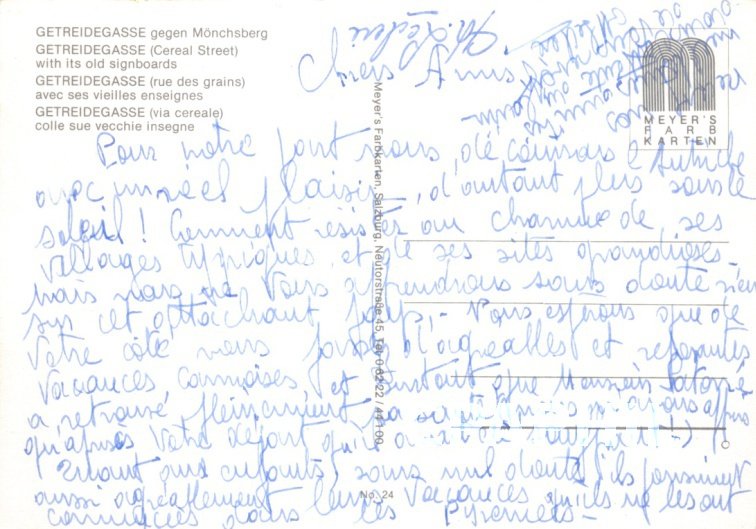 GETREIDEGASSE gegen Mönchsberg
GETREIDEGASSE (Cereal Street)
with its old signboards
GETREIDEGASSE (rue des grains)
avec ses vieilles enseignes
GETREIDEGASSE (via cereale)
colle sue vecchie insegne
MEYER'S
FARB
KARTEN
Meyer's Farbkarten, Salzburg, Neutorstraße 45, Tel. 0 62 22 / 44 1 00
Chers Amis
Pour notre part nous découvrons l'Autriche
avec un réel plaisir, d'autant plus sous le
soleil ! Comment résister au charme de ses
villages typiques et de ses sites grandioses
mais nous ne vous apprendrons sans doute rien
sur cet attachant pays. Nous espérons que de
votre côté vous passez d'agréables et reposantes
vacances cannoises et surtout que Monsieur
a retrouvé pleinement sa avions appris
qu'après votre départ qu'il a
Quant aux enfants, sans nul doute, ils poursuivent
aussi agréablement leurs vacances qu'ils ne les ont
commencées dans les Pyrénées
No. 24